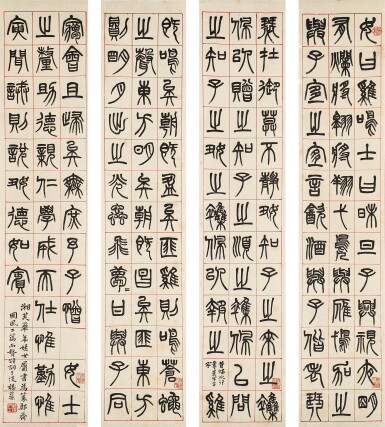 女曰雞鳴士曰昧旦子興視夜明星
有爛將翱將翔弋鳧與雁弋言加之
與子宜之宜言飲酒與子偕老琴
瑟在御莫不靜好知子之來之雜
佩以贈之知子之順之雜佩以問
之知子之好之雜佩以報之
雞
既鳴矣朝既盈矣匪雞則鳴蒼蠅
之聲東方明矣朝既昌矣匪東方
則明月出之光蟲飛薨=甘與子同
夢會且歸矣無庶予子憎 女士
之釐助德親仁學成而仕惟勤惟
寅聞誡則說好德如賓